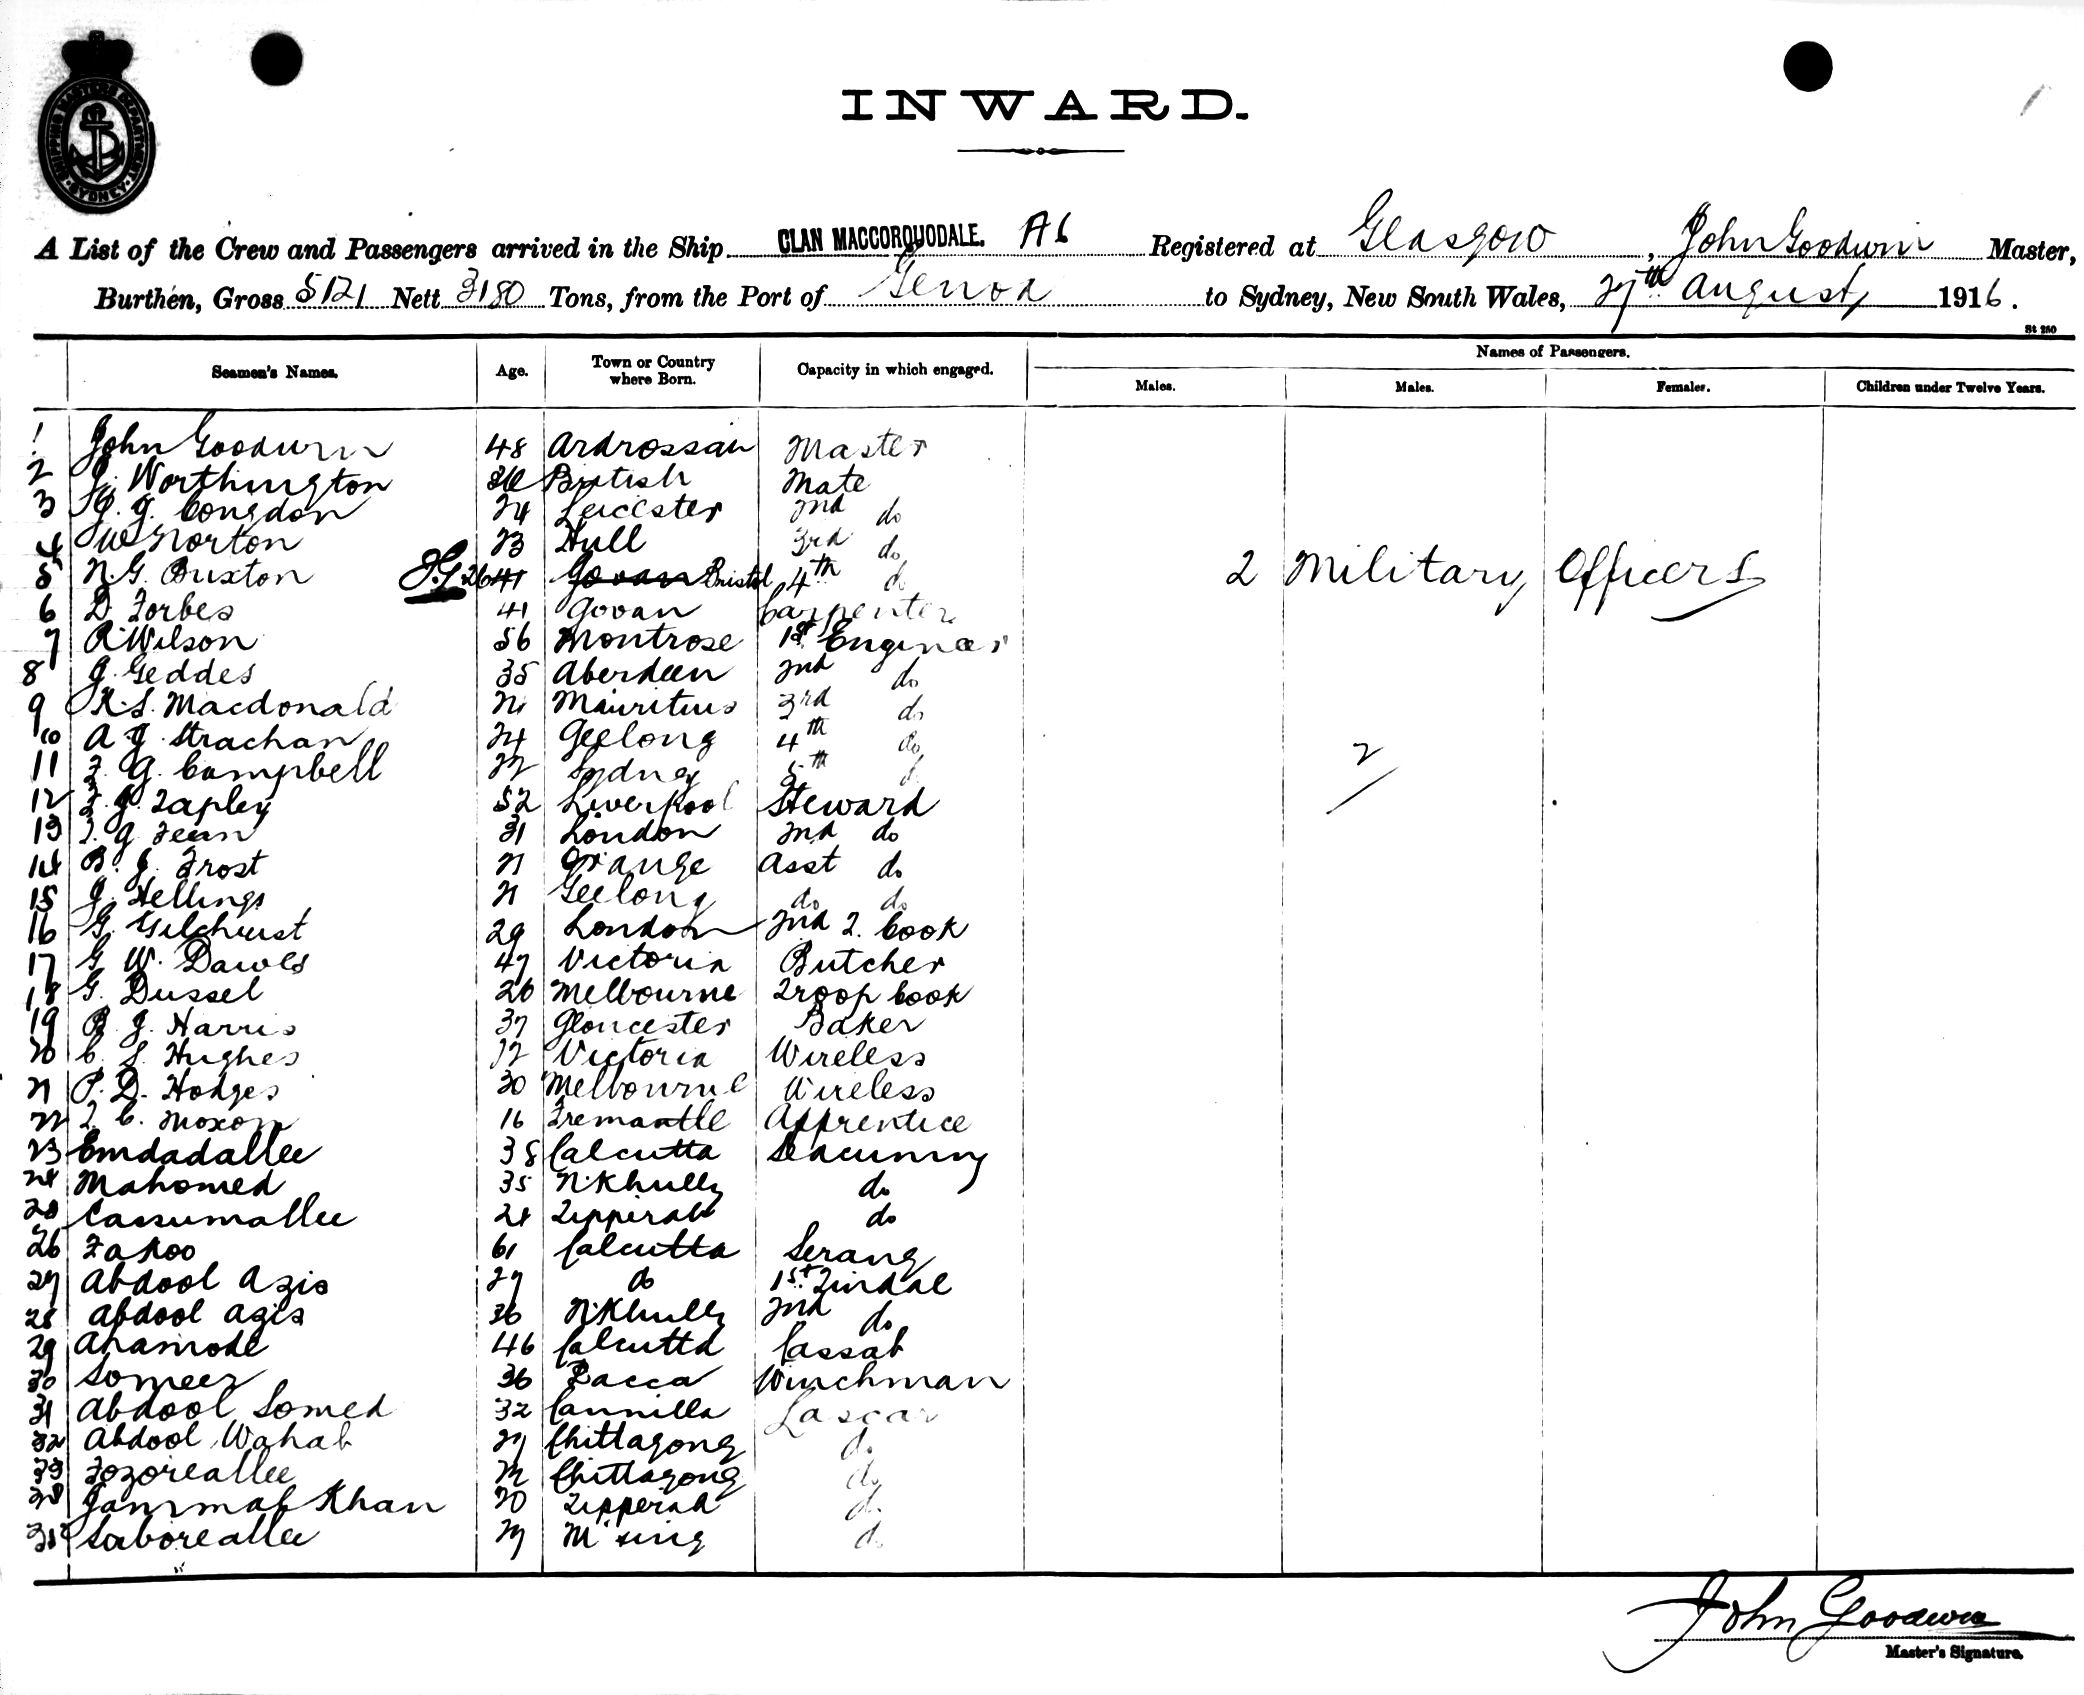 SHIPPING MASTERS DEPARTMENT SYDNEY
INWARD.
A List of the Crew and Passengers arrived in the Ship CLAN MACCORQUODALE. A6 Registered at Glasgow, John Goodwin Master,
Burthen, Gross 5121 Nett 3180 Tons, from the Port of Genoa to Sydney, New South Wales, 27th August 1916.
St 250
Seamen's Names. Age. Town or Country where Born. Capacity in which engaged. Names of Passengers.
Males. Males. Females. Children under Twelve Years.
1 John Goodwin 48 Ardrossan Master
2 J. Worthington British Mate
3 G. J. Congdon 24 Leicester 2nd do
4 W Norton 23 Hull 3rd do
5 N. G. Buxton J.G. 26 41 Govan Bristol 4th do 2 Military Officers
6 D. Forbes 41 Govan Carpenter
7 R. Wilson 56 Montrose 1st Engineer
8 J. Geddes 35 Aberdeen 2nd do
9 K. S. Macdonald 21 Mauritius 3rd do
10 A. J. Strachan 24 Geelong 4th do
11 F. G. Campbell 22 Sydney 5th do 2
12 F. J. Tapley 52 Liverpool Steward
13 T. G. Fean 31 London 2nd do
14 B. J. Frost 21 Orange Asst do
15 J. Hellings 21 Geelong do do
16 G. Gilchrist 29 London 2nd 2. Cook
17 G. W. Dawes 47 Victoria Butcher
18 G. Dussel 26 Melbourne Troop Cook
19 B. J. Harris 37 Gloucester Baker
20 C. S. Hughes 22 Victoria Wireless
21 P. D. Hodges 30 Melbourne Wireless
22 T. C. Moxon 16 Fremantle Apprentice
23 Emdadallee 38 Calcutta Seacunny
24 Mahomed 35 N. Khully do
25 Cassumallee 24 Tipperah do
26 Fakoo 61 Calcutta Serang
27 Abdool Azis 27 do 1st Tindal
28 Abdool Azis 36 N. Khully 2nd do
29 Anamode 46 Calcutta Cassab
30 Someer 36 Dacca Winchman
31 Abdool Somed 32 Camilla Lascar
32 Abdool Wahab 27 Chittagong do
33 Fozoreallee 22 Chittagong do
34 Jammal Khan 20 Tipperah do
35 Saboreallee 27 M'sing do
John Goodwin
Master's Signature.